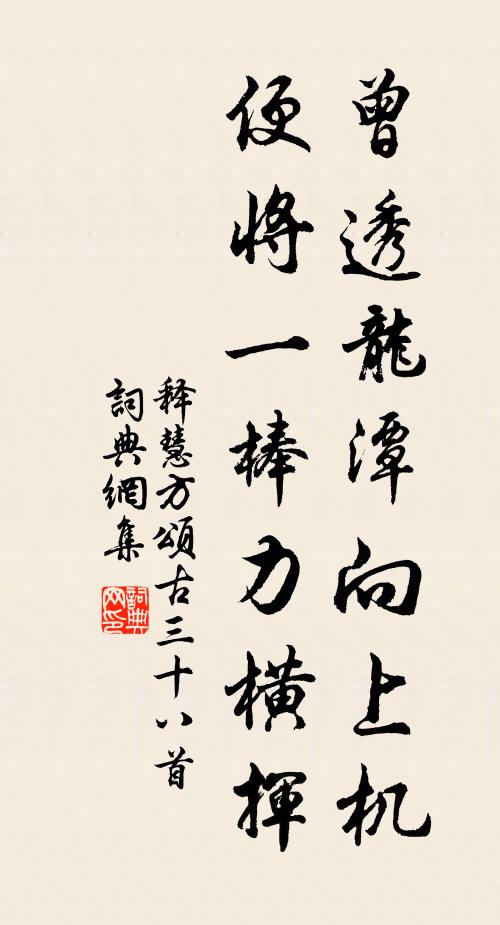 曾透龍潭向上机
便將一棒力橫揮
释慧方頌古三十八首
詞典網集
詞典网印